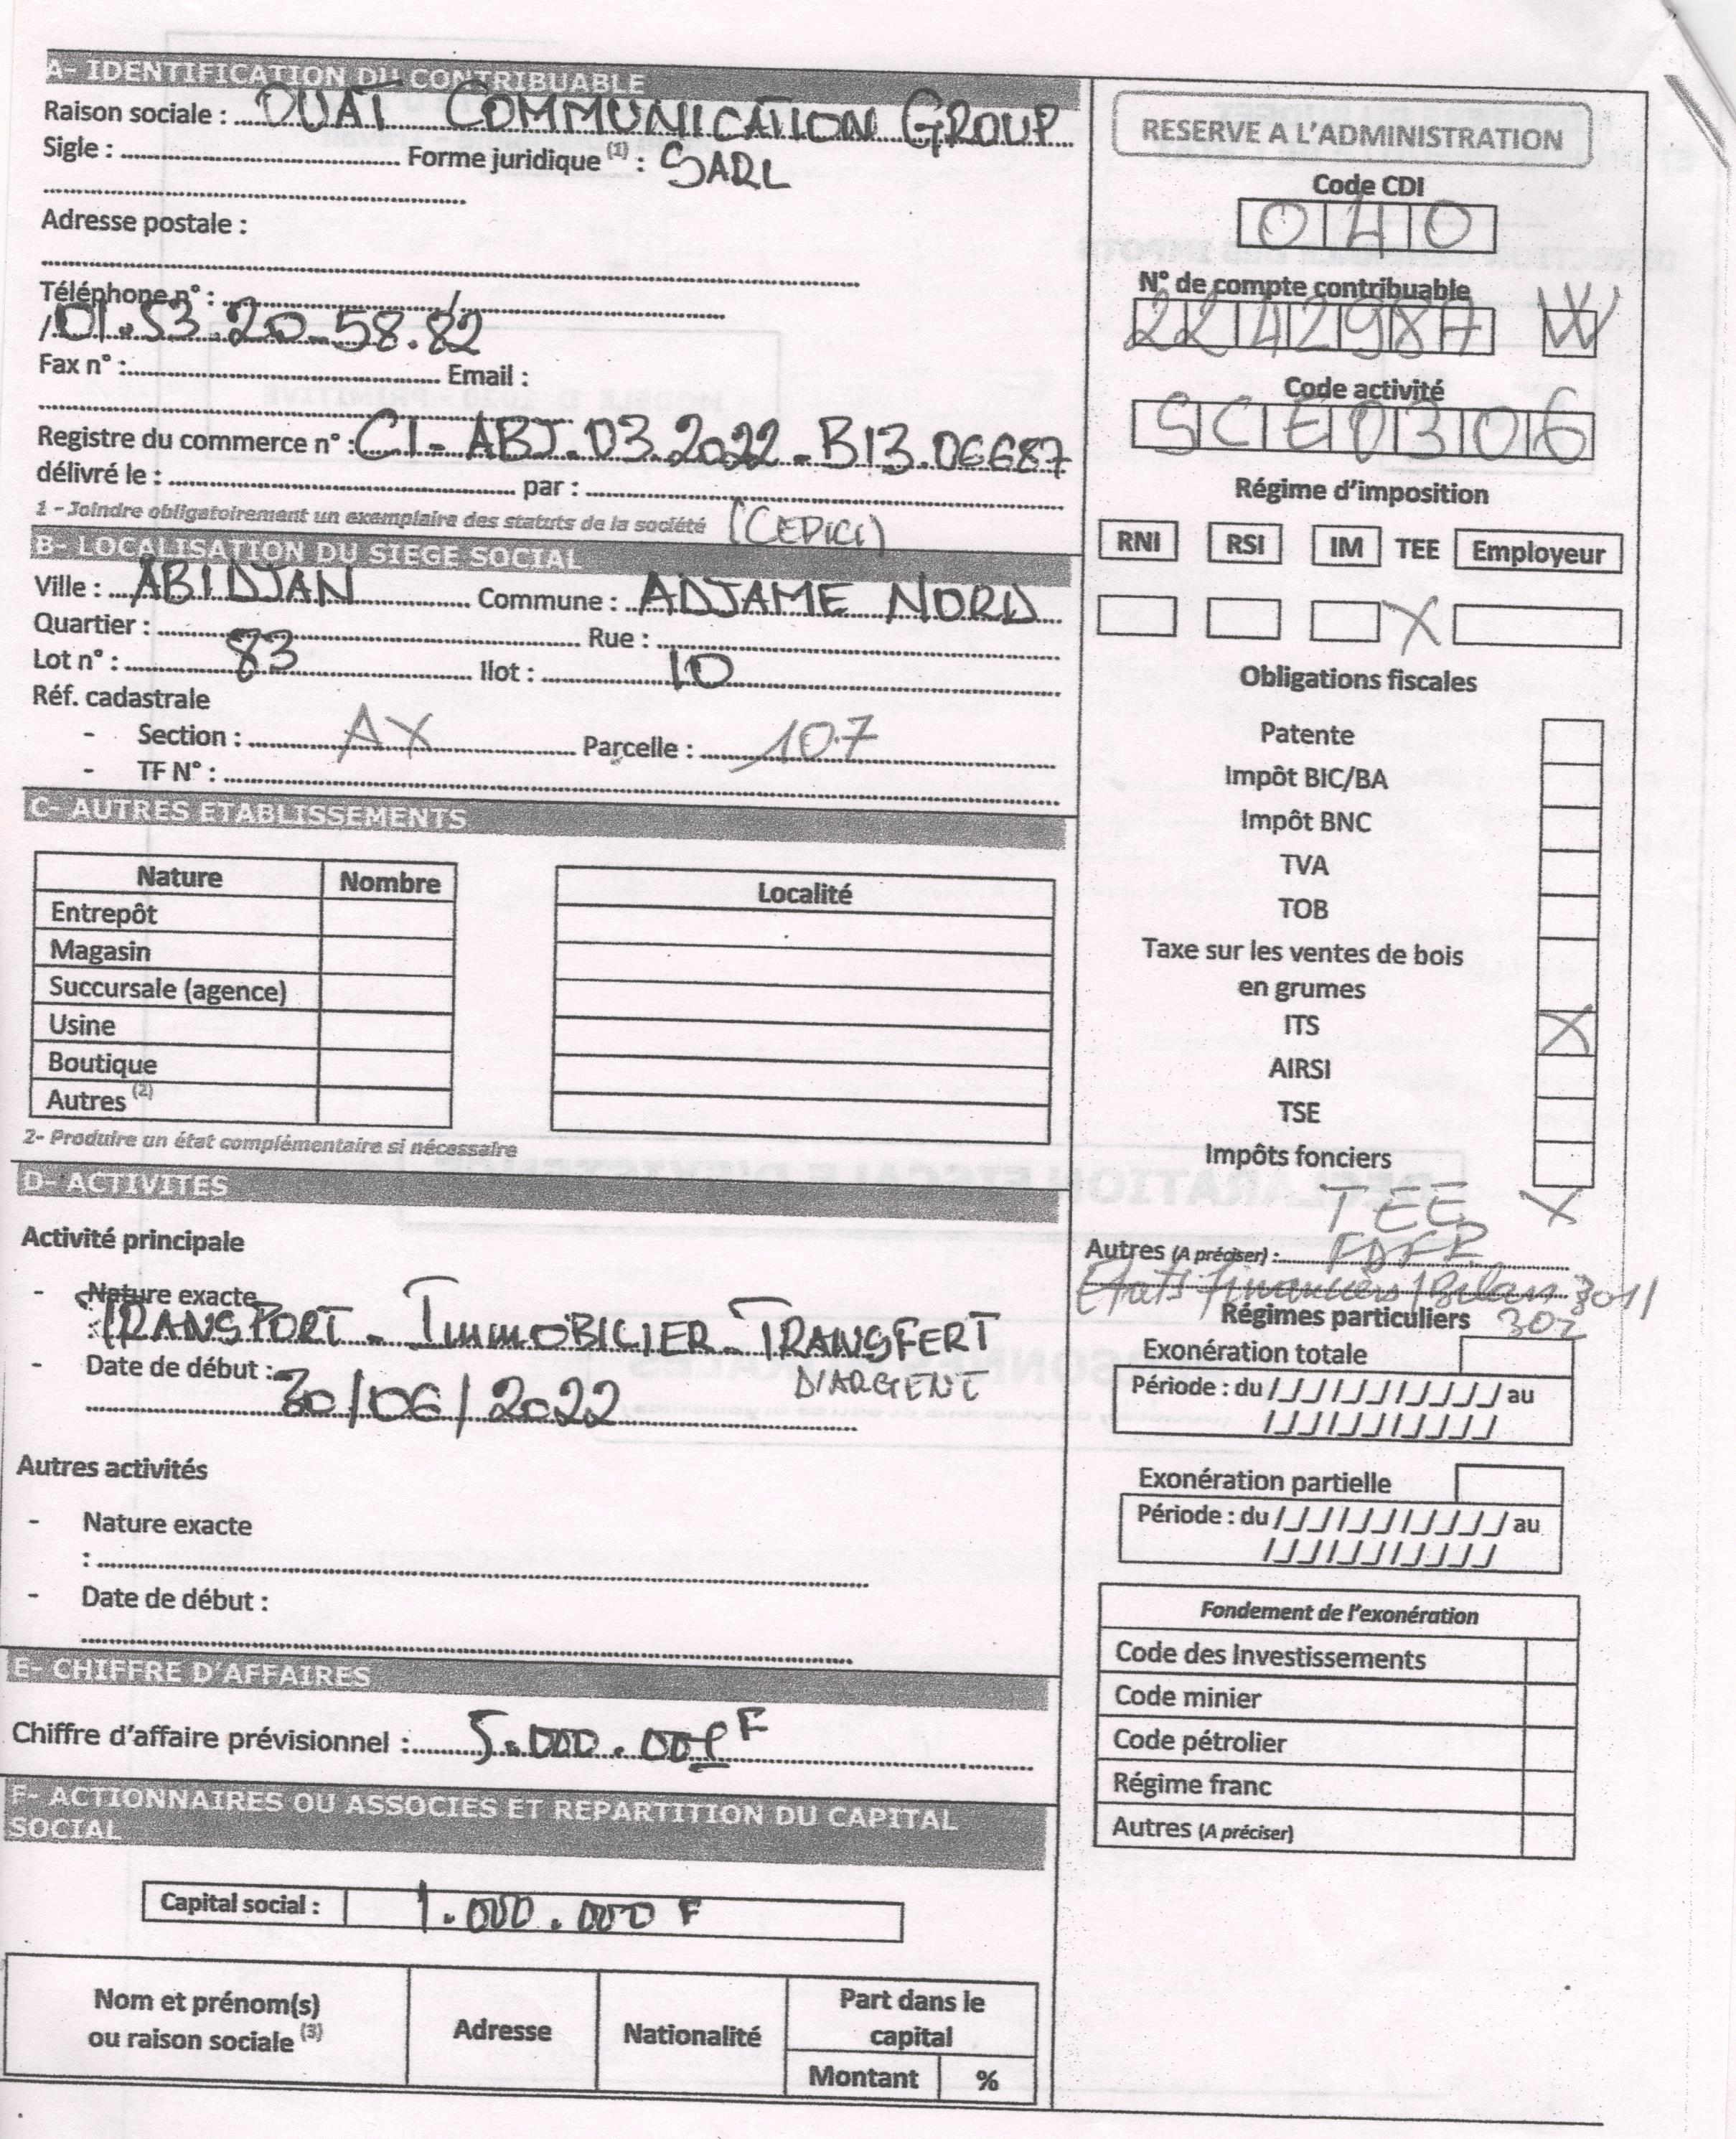 A- IDENTIFICATION DU CONTRIBUABLE
Raison sociale : OUAT COMMUNICATION GROUP
Sigle : Forme juridique (1) : SARL
Adresse postale :
Téléphone n° :
/01.53.20-58.82
Fax n° : Email :
Registre du commerce n° : CI-ABJ.03.2022-B13.06687
délivré le : par :
1 - Joindre obligatoirement un exemplaire des statuts de la société (CEPICI)
B- LOCALISATION DU SIEGE SOCIAL
Ville : ABIDJAN Commune : ADJAME NORD
Quartier : Rue :
Lot n° : 83 Ilot : 10
Réf. cadastrale
- Section : AX Parcelle : 107
- TF N° :
C- AUTRES ETABLISSEMENTS
Nature Nombre Localité
Entrepôt
Magasin
Succursale (agence)
Usine
Boutique
Autres (2)
2- Produire un état complémentaire si nécessaire
D- ACTIVITES
Activité principale
- Nature exacte
: TRANSPORT - IMMOBILIER - TRANSFERT
D'ARGENT
- Date de début :
30/06/2022
Autres activités
- Nature exacte
:
- Date de début :
E- CHIFFRE D'AFFAIRES
Chiffre d'affaire prévisionnel : 5.000.000 F
F- ACTIONNAIRES OU ASSOCIES ET REPARTITION DU CAPITAL
SOCIAL
Capital social : 1.000.000 F
Nom et prénom(s)
ou raison sociale (3)
Adresse
Nationalité
Part dans le
capital
Montant %
RESERVE A L'ADMINISTRATION
Code CDI
040
N° de compte contribuable
2242987 W
Code activité
SCE0306
Régime d'imposition
RNI RSI IM TEE Employeur
X
Obligations fiscales
Patente
Impôt BIC/BA
Impôt BNC
TVA
TOB
Taxe sur les ventes de bois
en grumes
ITS X
AIRSI
TSE
Impôts fonciers
TEE X
Autres (A préciser) : FDFP
Etats Financiers/Bilan 301/
302
Régimes particuliers
Exonération totale
Période : du /_/_/_/_/_/_/_/_/_/_/ au
/_/_/_/_/_/_/_/_/_/_/
Exonération partielle
Période : du /_/_/_/_/_/_/_/_/_/_/ au
/_/_/_/_/_/_/_/_/_/_/
Fondement de l'exonération
Code des Investissements
Code minier
Code pétrolier
Régime franc
Autres (A préciser)